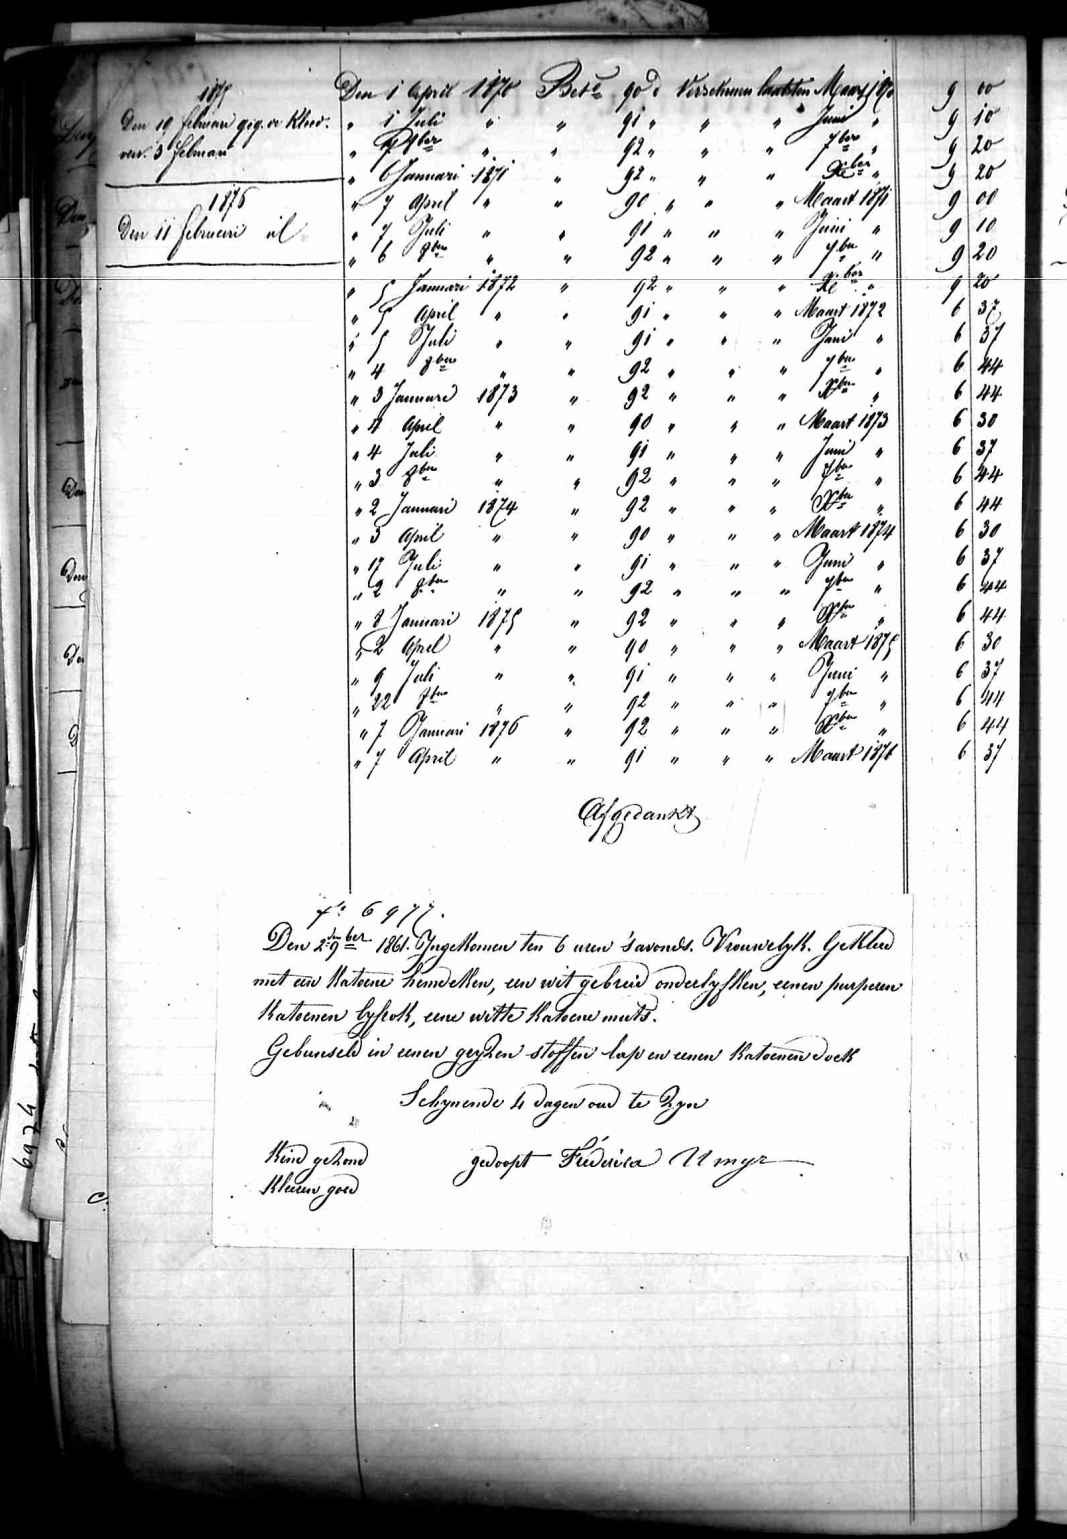 1875
Den 19 februari geg. de Kleed.
verv. 3 februari
1876
Den 11 februari id
Den 1 April 1870 Bet.e 90 d Verschenen laatsten Maart 1870 9 00
" 1 Juli " " 91 " " " Juni " 9 10
" 7 8ber " " 92 " " " 7ber " 9 20
" 6 Januari 1871 " 92 " " " Xber " 9 20
" 7 April " " 90 " " " Maart 1871 9 00
" 7 Juli " " 91 " " " Juni " 9 10
" 6 8ber " " 92 " " " 7ber " 9 20
" 5 Januari 1872 " 92 " " " Xber " 9 20
" 5 April " " 91 " " " Maart 1872 6 37
" 5 Juli " " 91 " " " Juni " 6 37
" 4 8ber " " 92 " " " 7ber " 6 44
" 3 Januari 1873 " 92 " " " Xber " 6 44
" 4 April " " 90 " " " Maart 1873 6 30
" 4 Juli " " 91 " " " Juni " 6 37
" 3 8ber " " 92 " " " 7ber " 6 44
" 2 Januari 1874 " 92 " " " Xber " 6 44
" 3 April " " 90 " " " Maart 1874 6 30
" 17 Juli " " 91 " " " Juni " 6 37
" 2 8ber " " 92 " " " 7ber " 6 44
" 8 Januari 1875 " 92 " " " Xber " 6 44
" 2 April " " 90 " " " Maart 1875 6 30
" 9 Juli " " 91 " " " Juni " 6 37
" 22 8ber " " 92 " " " 7ber " 6 44
" 7 Januari 1876 " 92 " " " Xber " 6 44
" 7 April " " 91 " " " Maart 1876 6 37
Afgedankt
6977.
Den 2den 9ber 1861. Ingekomen ten 6 uren 's avonds. Vrouwelyk. Gekleed
met een katoene hemdeken, een wit gebreid onderlyfken, eenen purperen
katoenen lyfrok, eene witte katoene muts.
Gebunseld in eenen gryzen stoffen lap en eenen katoenen doek
Schynende 4 dagen oud te zyn
Kind gezond
gedoopt Fréderica Umyz
Kleeren goed
6974